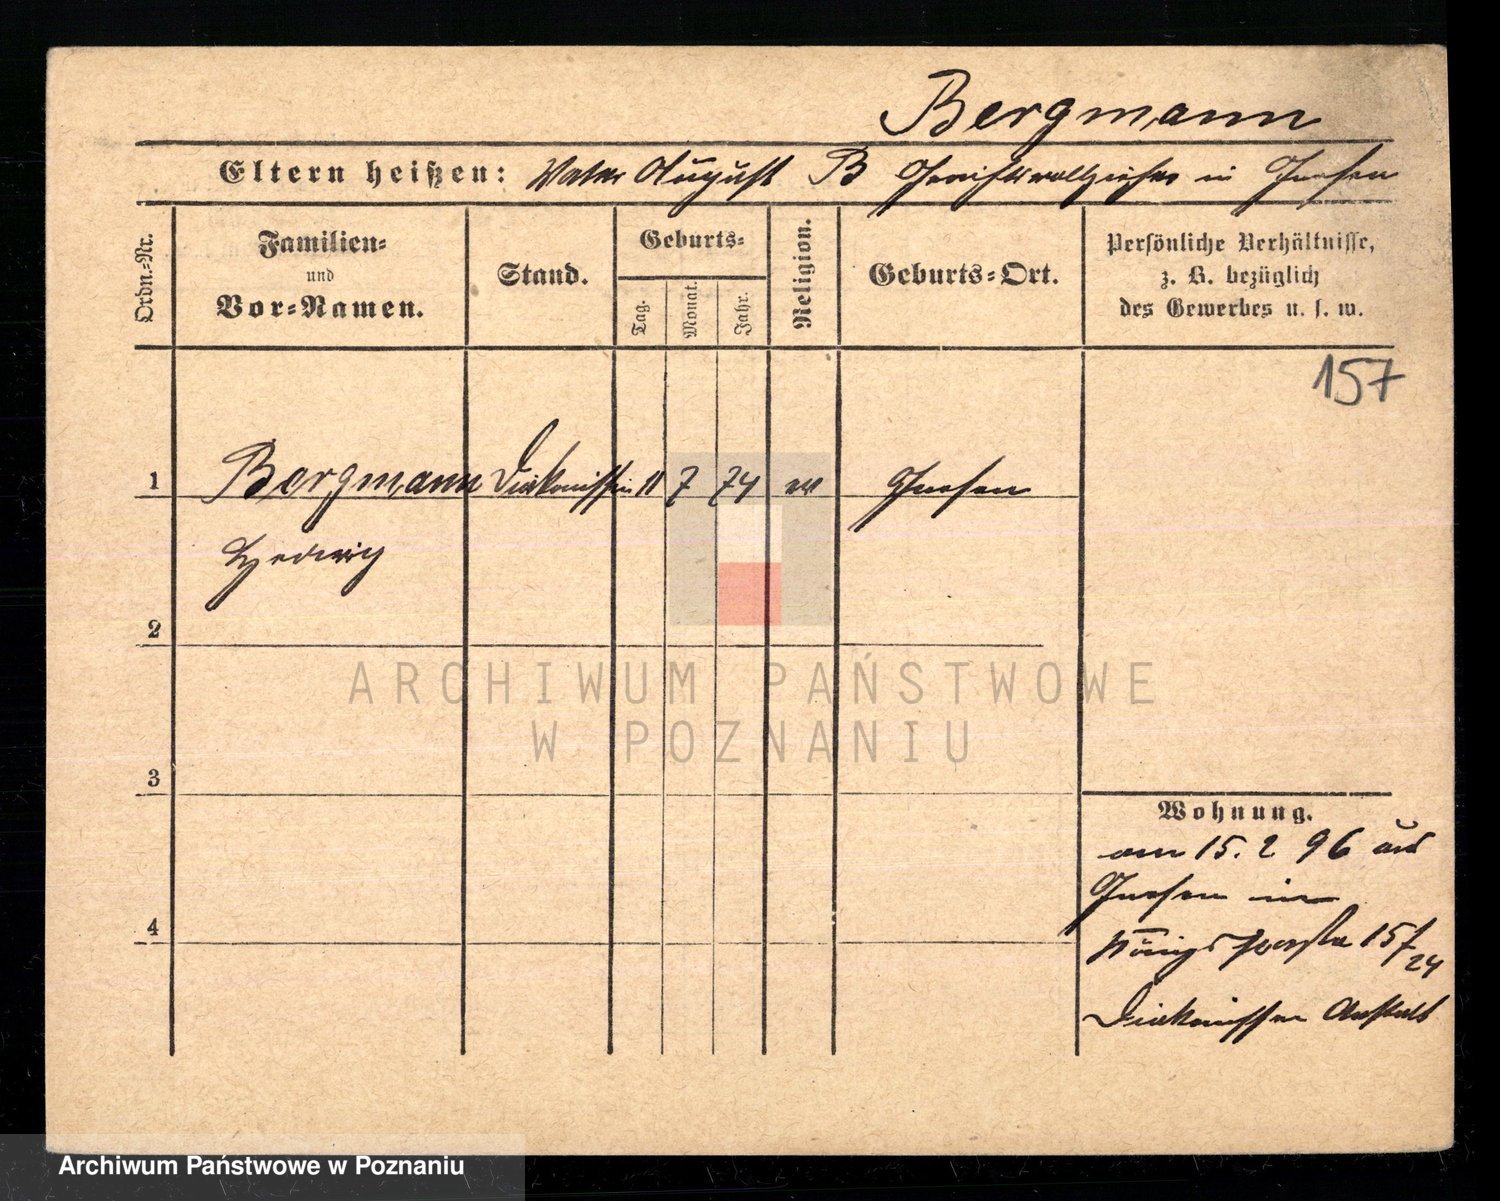 Bergmann
Eltern heißen: Vater August B Gerichtsvollzieher in Gnesen
Ordn.-Nr.
Familien-
und
Vor-Namen.
Stand.
Geburts-
Tag.
Monat.
Jahr.
Religion.
Geburts-Ort.
Persönliche Verhältnisse,
z. B. bezüglich
des Gewerbes u. s. w.
157
1 Bergmann Diakonissin 11 7 74 ev Gnesen
Hedwig
2
ARCHIWUM PAŃSTWOWE
W POZNANIU
3
Wohnung.
am 15. 2 96 aus
Gnesen in
4
Königs 157/24
Diakonissen Anstalt
Archiwum Państwowe w Poznaniu